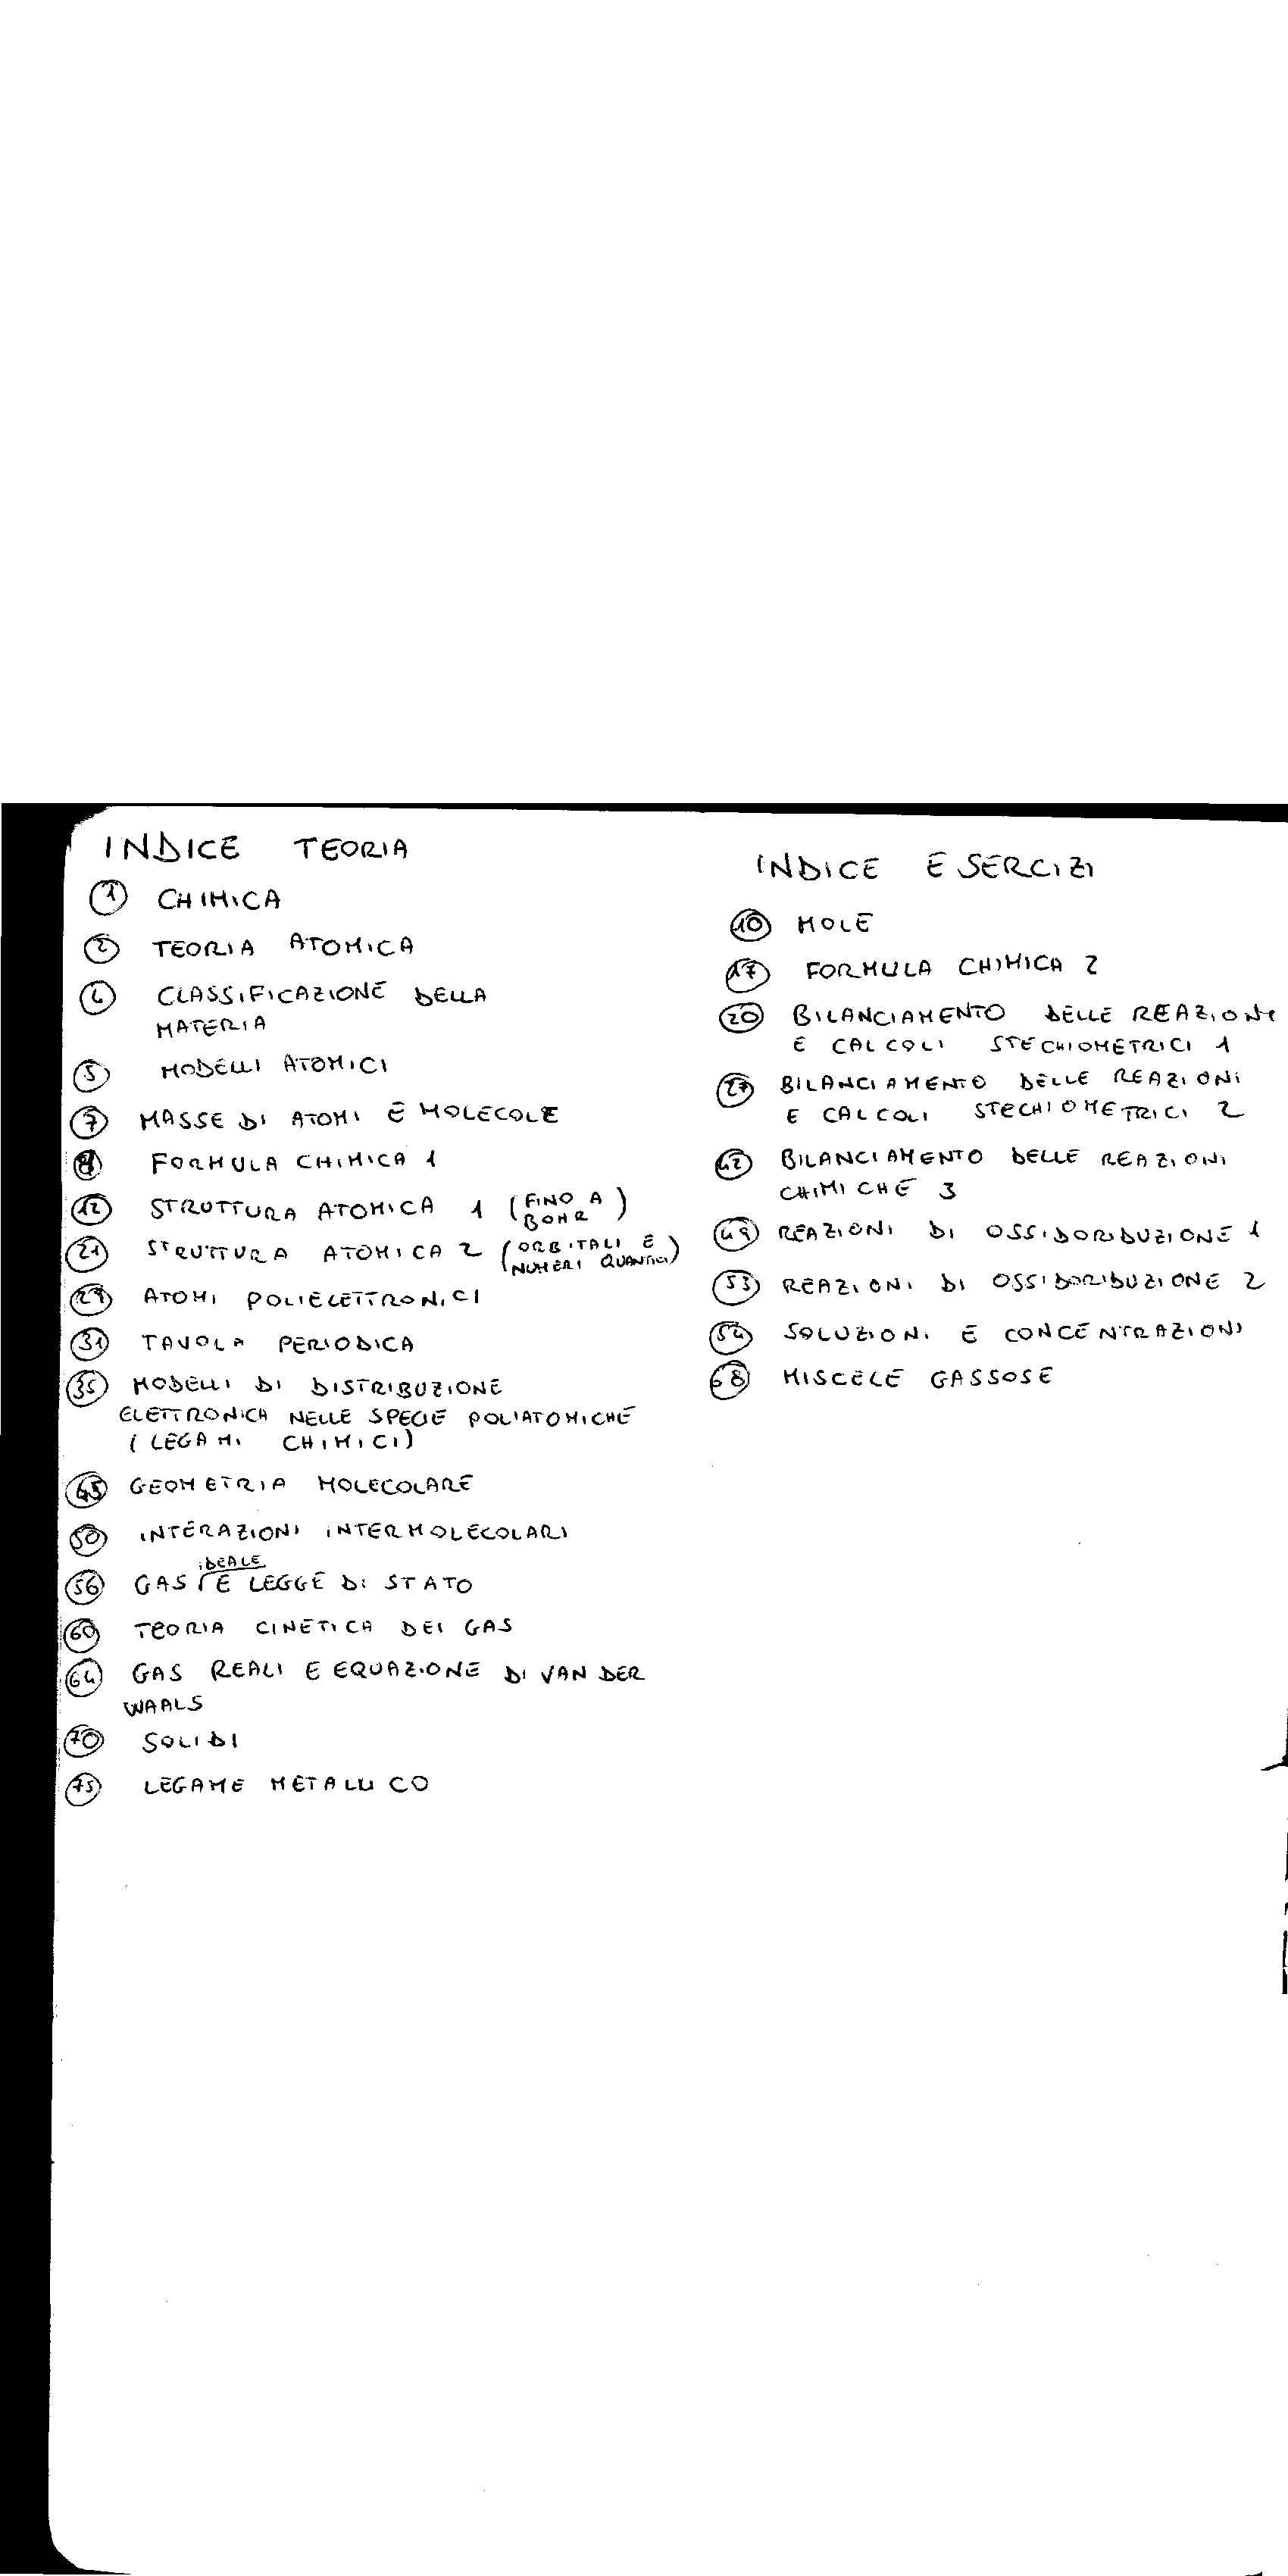 INDICE TEORIA
1 CHIMICA
2 TEORIA ATOMICA
4 CLASSIFICAZIONE DELLA
MATERIA
5 MODELLI ATOMICI
7 MASSE DI ATOMI E MOLECOLE
FORMULA CHIMICA 1
12 STRUTTURA ATOMICA 1 (FINO A
BOHR)
21 STRUTTURA ATOMICA 2 (ORBITALI E
NUMERI QUANTICI)
29 ATOMI POLIELETTRONICI
31 TAVOLA PERIODICA
35 MODELLI DI DISTRIBUZIONE
ELETTRONICA NELLE SPECIE POLIATOMICHE
(LEGAMI CHIMICI)
45 GEOMETRIA MOLECOLARE
50 INTERAZIONI INTERMOLECOLARI
IDEALE
56 GAS E LEGGE DI STATO
60 TEORIA CINETICA DEI GAS
64 GAS REALI E EQUAZIONE DI VAN DER
WAALS
70 SOLIDI
75 LEGAME METALLICO
INDICE ESERCIZI
10 MOLE
17 FORMULA CHIMICA 2
20 BILANCIAMENTO DELLE REAZIONI
E CALCOLI STECHIOMETRICI 1
27 BILANCIAMENTO DELLE REAZIONI
E CALCOLI STECHIOMETRICI 2
42 BILANCIAMENTO DELLE REAZIONI
CHIMICHE 3
49 REAZIONI DI OSSIDORIDUZIONE 1
53 REAZIONI DI OSSIDORIDUZIONE 2
54 SOLUZIONI E CONCENTRAZIONI
68 MISCELE GASSOSE